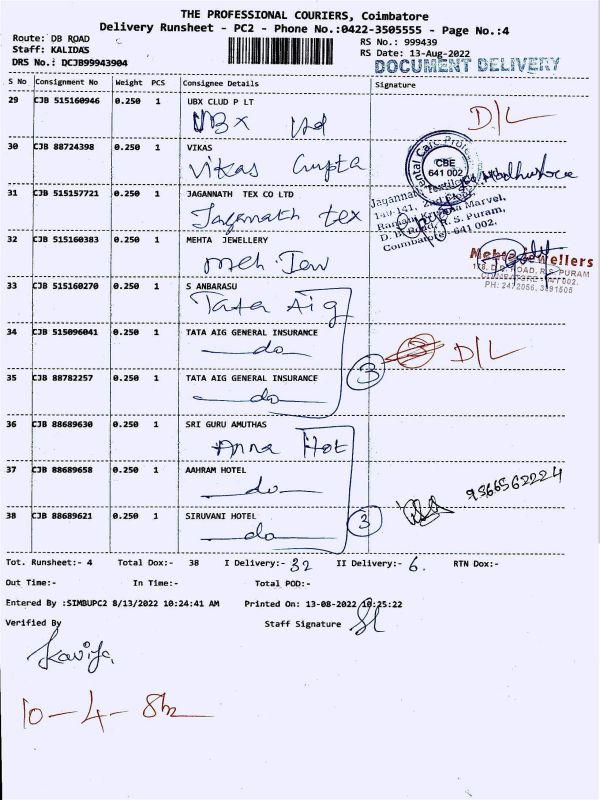 THE PROFESSIONAL COURIERS, Coimbatore
Delivery Runsheet - PC2 - Phone No.:0422-3505555 - Page No.:4
Route: DB ROAD RS No.: 999439
Staff: KALIDAS RS Date: 13-Aug-2022
DRS No.: DCJB99943904 DOCUMENT DELIVERY
S No Consignment No Weight PCS Consignee Details Signature
29 CJB 515160946 0.250 1 UBX CLUD P LT
UBX Ltd D/L
30 CJB 88724398 0.250 1 VIKAS
Vikas Gupta
CBE
641 002
31 CJB 515157721 0.250 1 JAGANNATH TEX CO LTD
Jagannath tex
Jagannath Textile
140-141, 2nd
Krishna Marvel,
D. B. Road, R. S. Puram,
Coimbatore - 641 002.
32 CJB 515160383 0.250 1 MEHTA JEWELLERY
Meh Jew
Mehta Jewellers
ROAD, R.S. PURAM
PH: 2472056,
33 CJB 515160270 0.250 1 S ANBARASU
Tata Aig
34 CJB 515096041 0.250 1 TATA AIG GENERAL INSURANCE
do
3 D/L
35 CJB 88782257 0.250 1 TATA AIG GENERAL INSURANCE
do
36 CJB 88689630 0.250 1 SRI GURU AMUTHAS
Anna Hot
37 CJB 88689658 0.250 1 AAHRAM HOTEL
do 9566562224
38 CJB 88689621 0.250 1 SIRUVANI HOTEL
do 3
Tot. Runsheet:- 4 Total Dox:- 38 I Delivery:- 32 II Delivery:- 6. RTN Dox:-
Out Time:- In Time:- Total POD:-
Entered By :SIMBUPC2 8/13/2022 10:24:41 AM Printed On: 13-08-2022 10:25:22
Verified By Staff Signature
10-4-